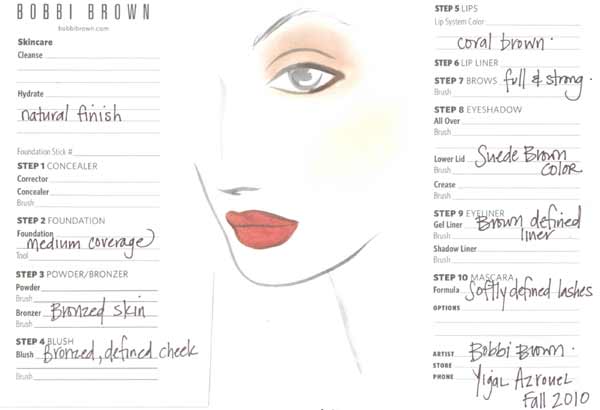 BOBBI BROWN
bobbibrown.com
Skincare
Cleanse
Hydrate
natural finish
Foundation Stick #
STEP 1 CONCEALER
Corrector
Concealer
Brush
STEP 2 FOUNDATION
Foundation
medium coverage
Tool
STEP 3 POWDER/BRONZER
Powder
Brush
Bronzer Bronzed skin
Brush
STEP 4 BLUSH
Blush Bronzed, defined cheek
Brush
STEP 5 LIPS
Lip System Color
coral brown.
STEP 6 LIP LINER
STEP 7 BROWS full & strong.
Brush
STEP 8 EYESHADOW
All Over
Brush
Lower Lid Suede Brown
Brush COLOR
Crease
Brush
STEP 9 EYELINER
Gel Liner Brown defined
Brush liner
Shadow Liner
Brush
STEP 10 MASCARA
Formula Softly defined lashes
OPTIONS
ARTIST Bobbi Brown.
STORE
PHONE Yigal Azrouel
Fall 2010